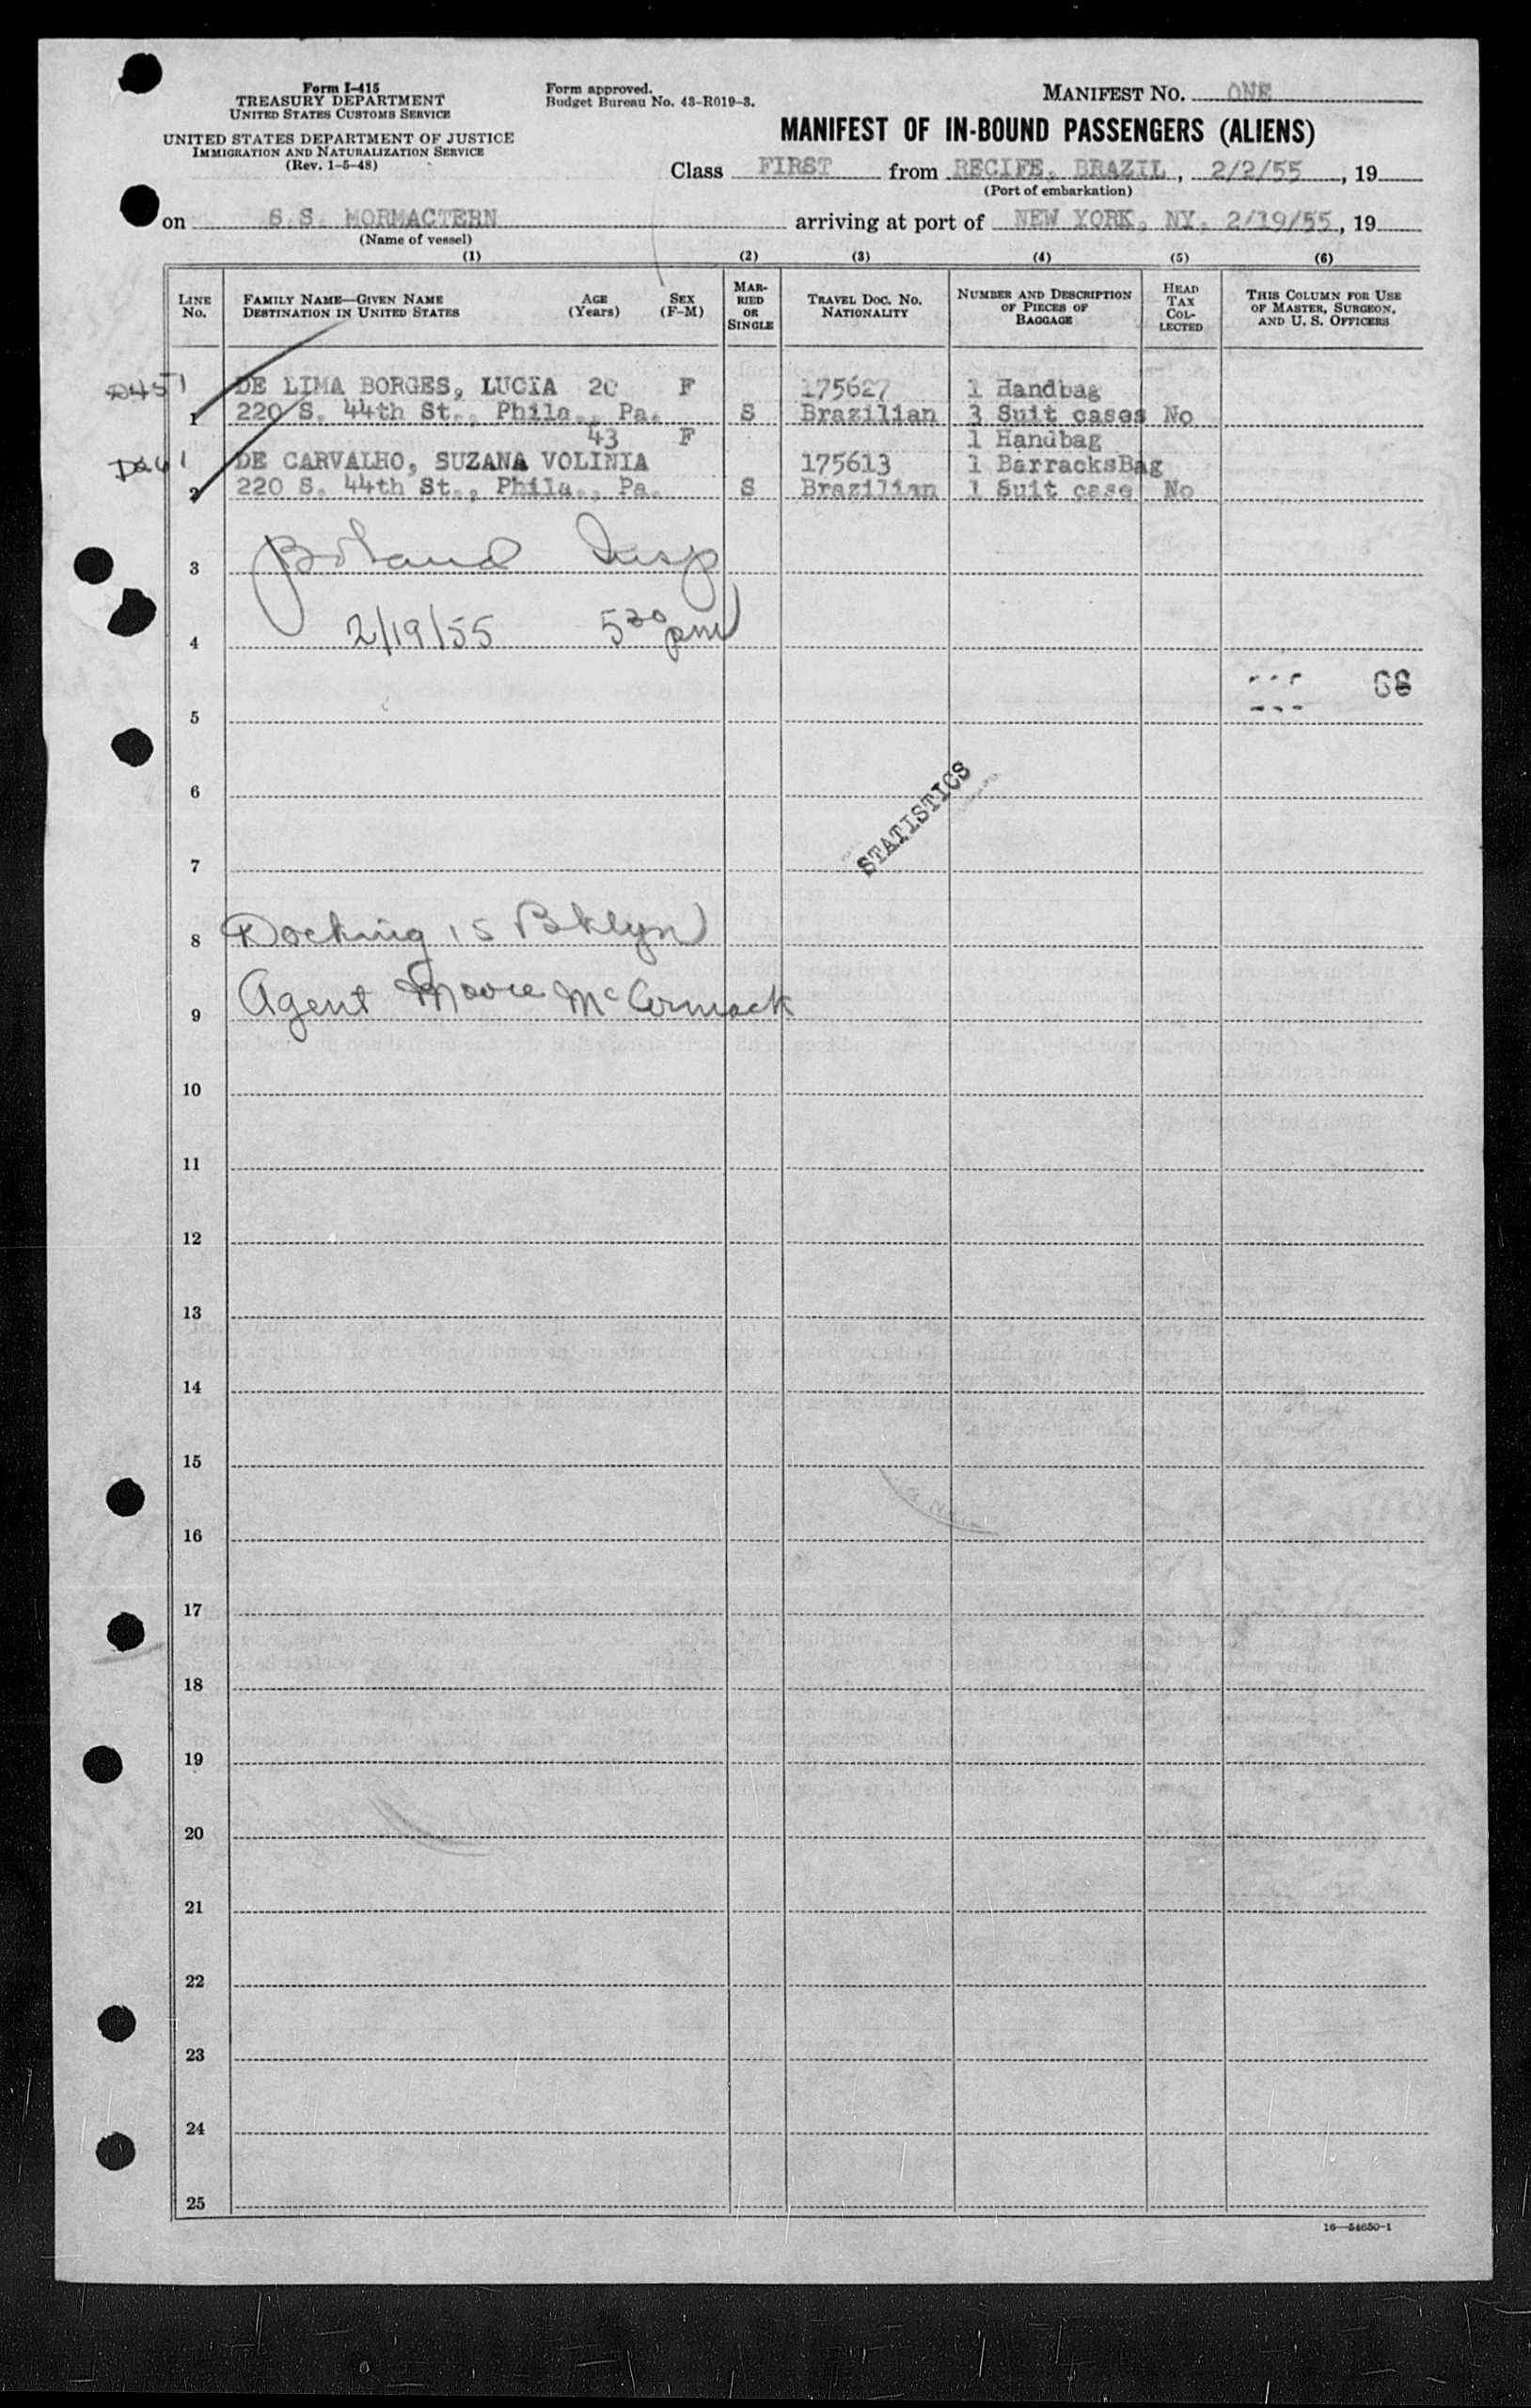 Form I-415
TREASURY DEPARTMENT
UNITED STATES CUSTOMS SERVICE
UNITED STATES DEPARTMENT OF JUSTICE
IMMIGRATION AND NATURALIZATION SERVICE
(Rev. 1-5-48)
Form approved.
Budget Bureau No. 43-R019-3.
MANIFEST NO. ONE
MANIFEST OF IN-BOUND PASSENGERS (ALIENS)
Class FIRST from RECIFE, BRAZIL, 2/2/55, 19
(Port of embarkation)
on S.S. MORMACTERN arriving at port of NEW YORK, NY. 2/19/55, 19
(Name of vessel)
(1) (2) (3) (4) (5) (6)
LINE NO.
FAMILY NAME—GIVEN NAME
DESTINATION IN UNITED STATES
AGE (Years)
SEX (F-M)
MARRIED OR SINGLE
TRAVEL DOC. NO.
NATIONALITY
NUMBER AND DESCRIPTION OF PIECES OF BAGGAGE
HEAD TAX COLLECTED
THIS COLUMN FOR USE OF MASTER, SURGEON, AND U. S. OFFICERS
DE LIMA BORGES, LUCIA 20 F 175627 1 Handbag
1 220 S. 44th St., Phila., Pa. S Brazilian 3 Suit cases No
43 F 1 Handbag
DE CARVALHO, SUZANA VOLINIA 175613 1 BarracksBag
2 220 S. 44th St., Phila., Pa. S Brazilian 1 Suit case No
3 Insp
4 2/19/55 5 30 pm
68
5
6
STATISTICS
7
8 Docking 15 Bklyn
9 Agent Moore McCormack
10
11
12
13
14
15
16
17
18
19
20
21
22
23
24
25
16—54650-1